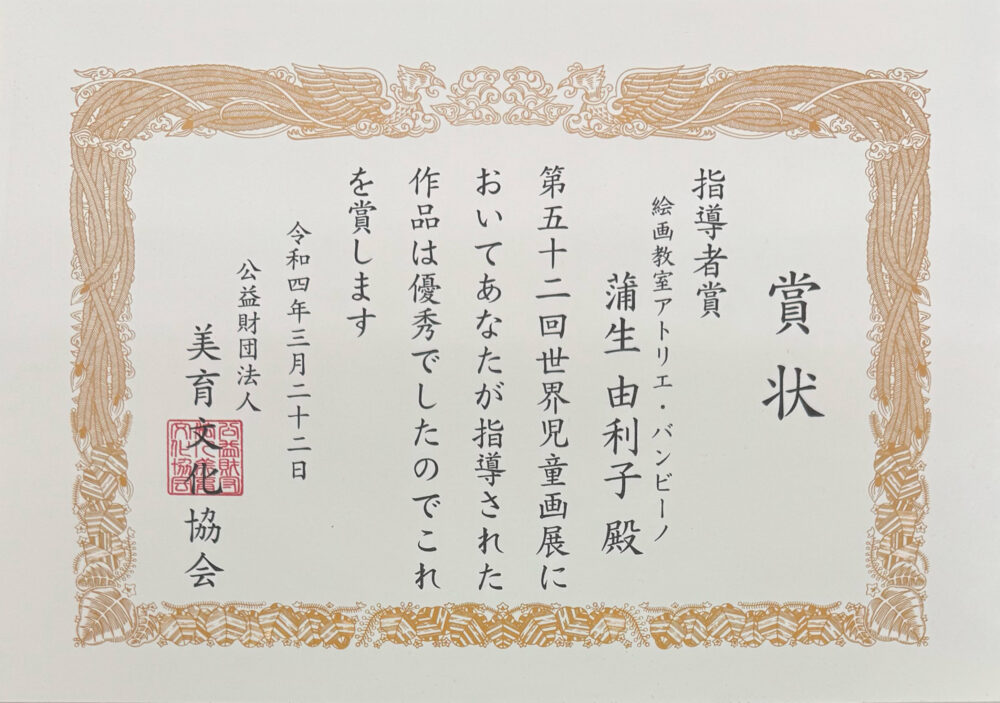 賞状
指導者賞
絵画教室アトリエ・バンビーノ
蒲生 由利子 殿
第五十二回世界児童画展に
おいてあなたが指導された
作品は優秀でしたのでこれ
を賞します
令和四年三月二十二日
公益財団法人
美育文化協会